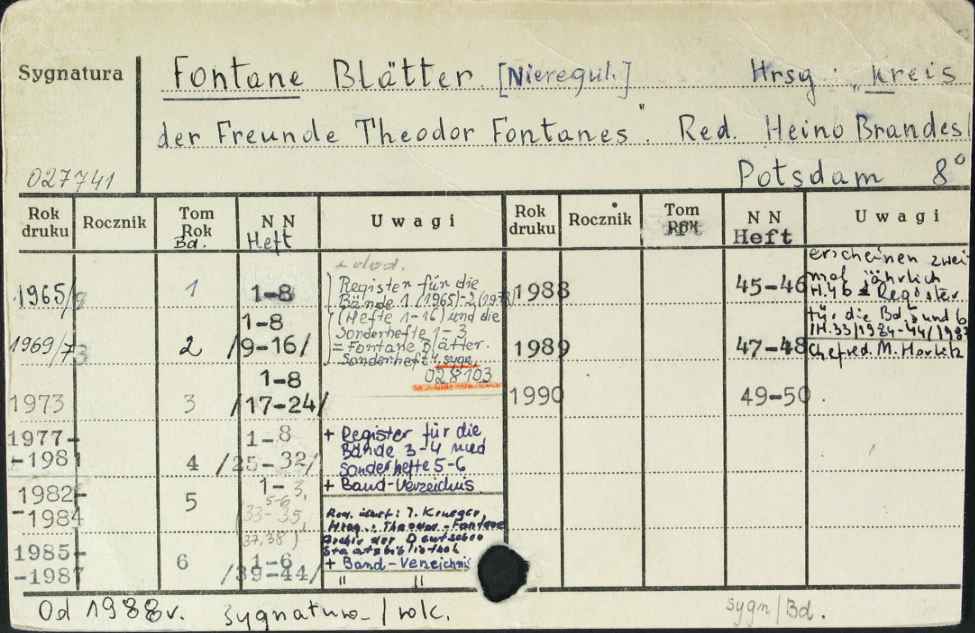 Sygnatura
Fontane Blätter. [Nieregul.] Hrsg: „Kreis
der Freunde Theodor Fontanes". Red. Heino Brandes
027741
Potsdam 8°
Rok druku Rocznik Tom Rok Bd. NN Heft Uwagi Rok druku Rocznik Tom NN Heft Uwagi
1965/ 1 1-8
Register für die
Bände 1 (1965)-2
(Hefte 1-16) und die
Sonderhefte 1-3
= Fontane Blätter.
Sonderheft 4, sygn.
028103
1969/73 2 1-8 /9-16/
1973 3 1-8 /17-24/
1977-
-1981 4 1-8 /25-32/
+ Register für die
Bände 3-4 und
Sonderhefte 5-6
+ Band-Verzeichnis
1982-
-1984 5 1-3,
5-6,
(33-35,
37,38)
Krueger,
Hrsg.: Theodor-Fontane
Archiv der Deutschen
Staatsbibliothek
+ Band-Verzeichnis
1985-
-1987 6 1-6 /39-44/
" "
1988 45-46
erscheinen zwei-
mal jährlich
H.46 = Register
für die Bd. 5 und 6
/H.33/1984-44/1987
1989 47-48
Chefred. M. Horlitz
1990 49-50
Od 1988 r. sygnatura / rok.
sygn/Bd.